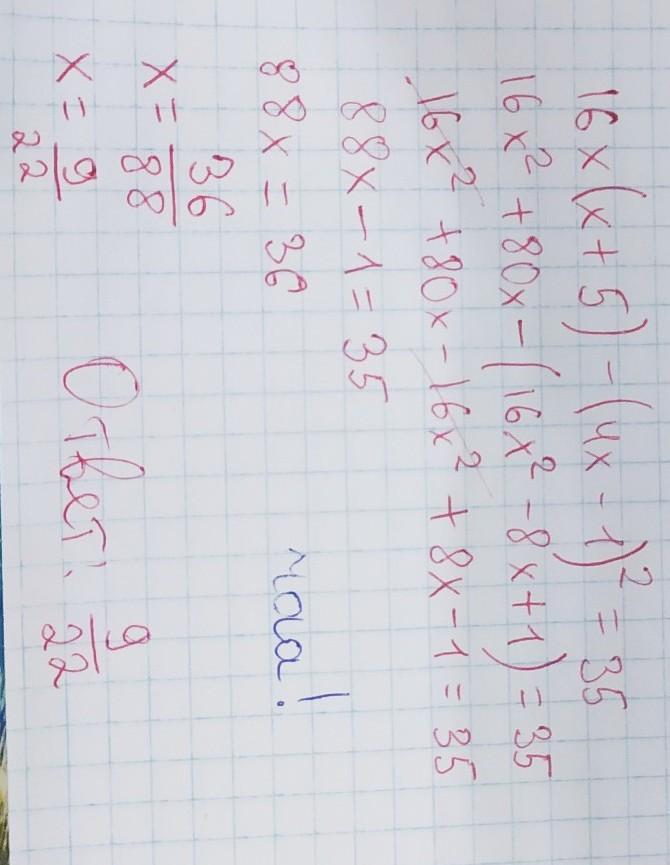 16x(x+5)-(4x-1)²=35
16x²+80x-(16x²-8x+1)=35
16x²+80x-16x²+8x-1=35
88x-1=35
88x=36
x=36/88
x=9/22
Ответ: 9/22